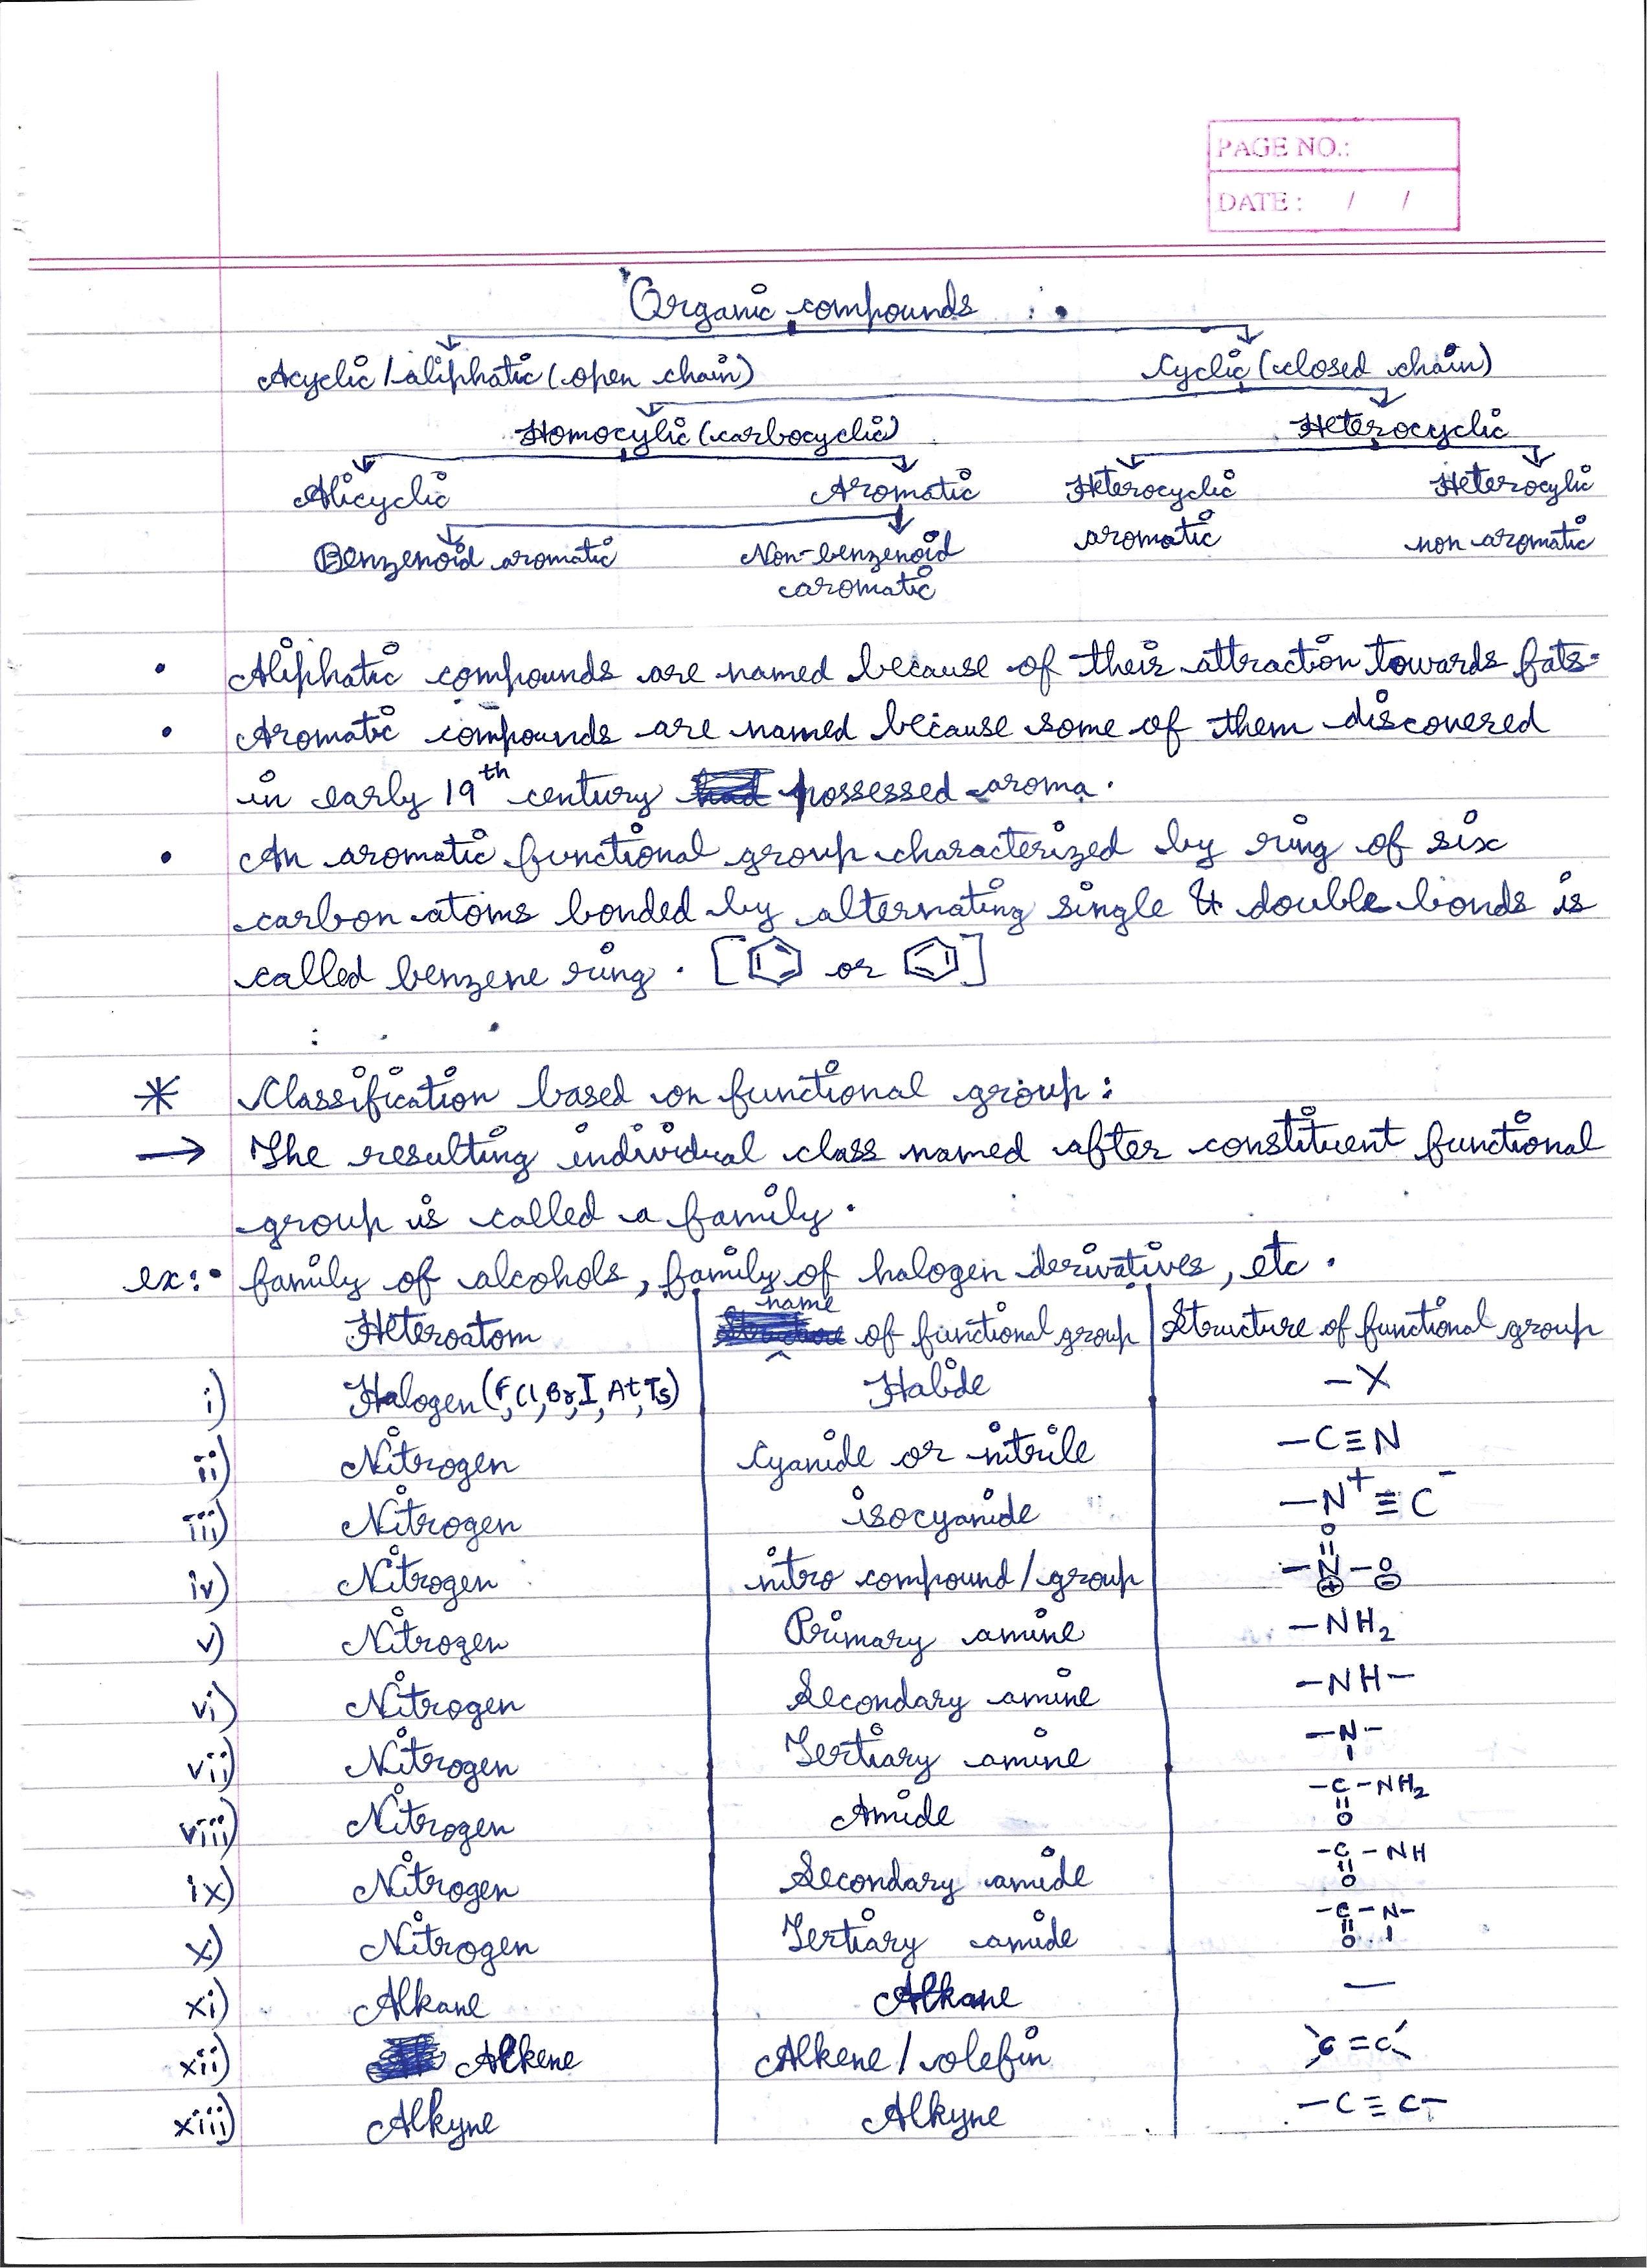 PAGE NO.:
DATE : / /
Organic compounds
Acyclic / aliphatic (open chain) Cyclic (closed chain)
Homocylic (carbocyclic) Heterocyclic
Alicyclic Aromatic Heterocyclic Heterocylic
aromatic non aromatic
Benzenoid aromatic Non-benzenoid
aromatic
• Aliphatic compounds are named because of their attraction towards fats.
• Aromatic compounds are named because some of them discovered
in early 19th century possessed aroma.
• An aromatic functional group characterized by ring of six
carbon atoms bonded by alternating single & double bonds is
called benzene ring. [ or ]
* Classification based on functional group:
→ The resulting individual class named after constituent functional
group is called a family.
ex:• family of alcohols, family of halogen derivatives, etc.
Heteroatom name of functional group Structure of functional group
i) Halogen (F, Cl, Br, I, At, Ts) Halide −X
ii) Nitrogen Cyanide or nitrile −C≡N
iii) Nitrogen isocyanide −N⁺≡C⁻
O
॥
iv) Nitrogen nitro compound/group −N−O
⊕ ⊖
v) Nitrogen Primary amine −NH₂
vi) Nitrogen Secondary amine −NH−
vii) Nitrogen Tertiary amine −N−
|
viii) Nitrogen Amide −C−NH₂
||
O
ix) Nitrogen Secondary amide −C−NH
||
O
x) Nitrogen Tertiary amide −C−N−
|| |
O
xi) Alkane Alkane —
xii) Alkene Alkene / olefin >C=C<
xiii) Alkyne Alkyne −C≡C−